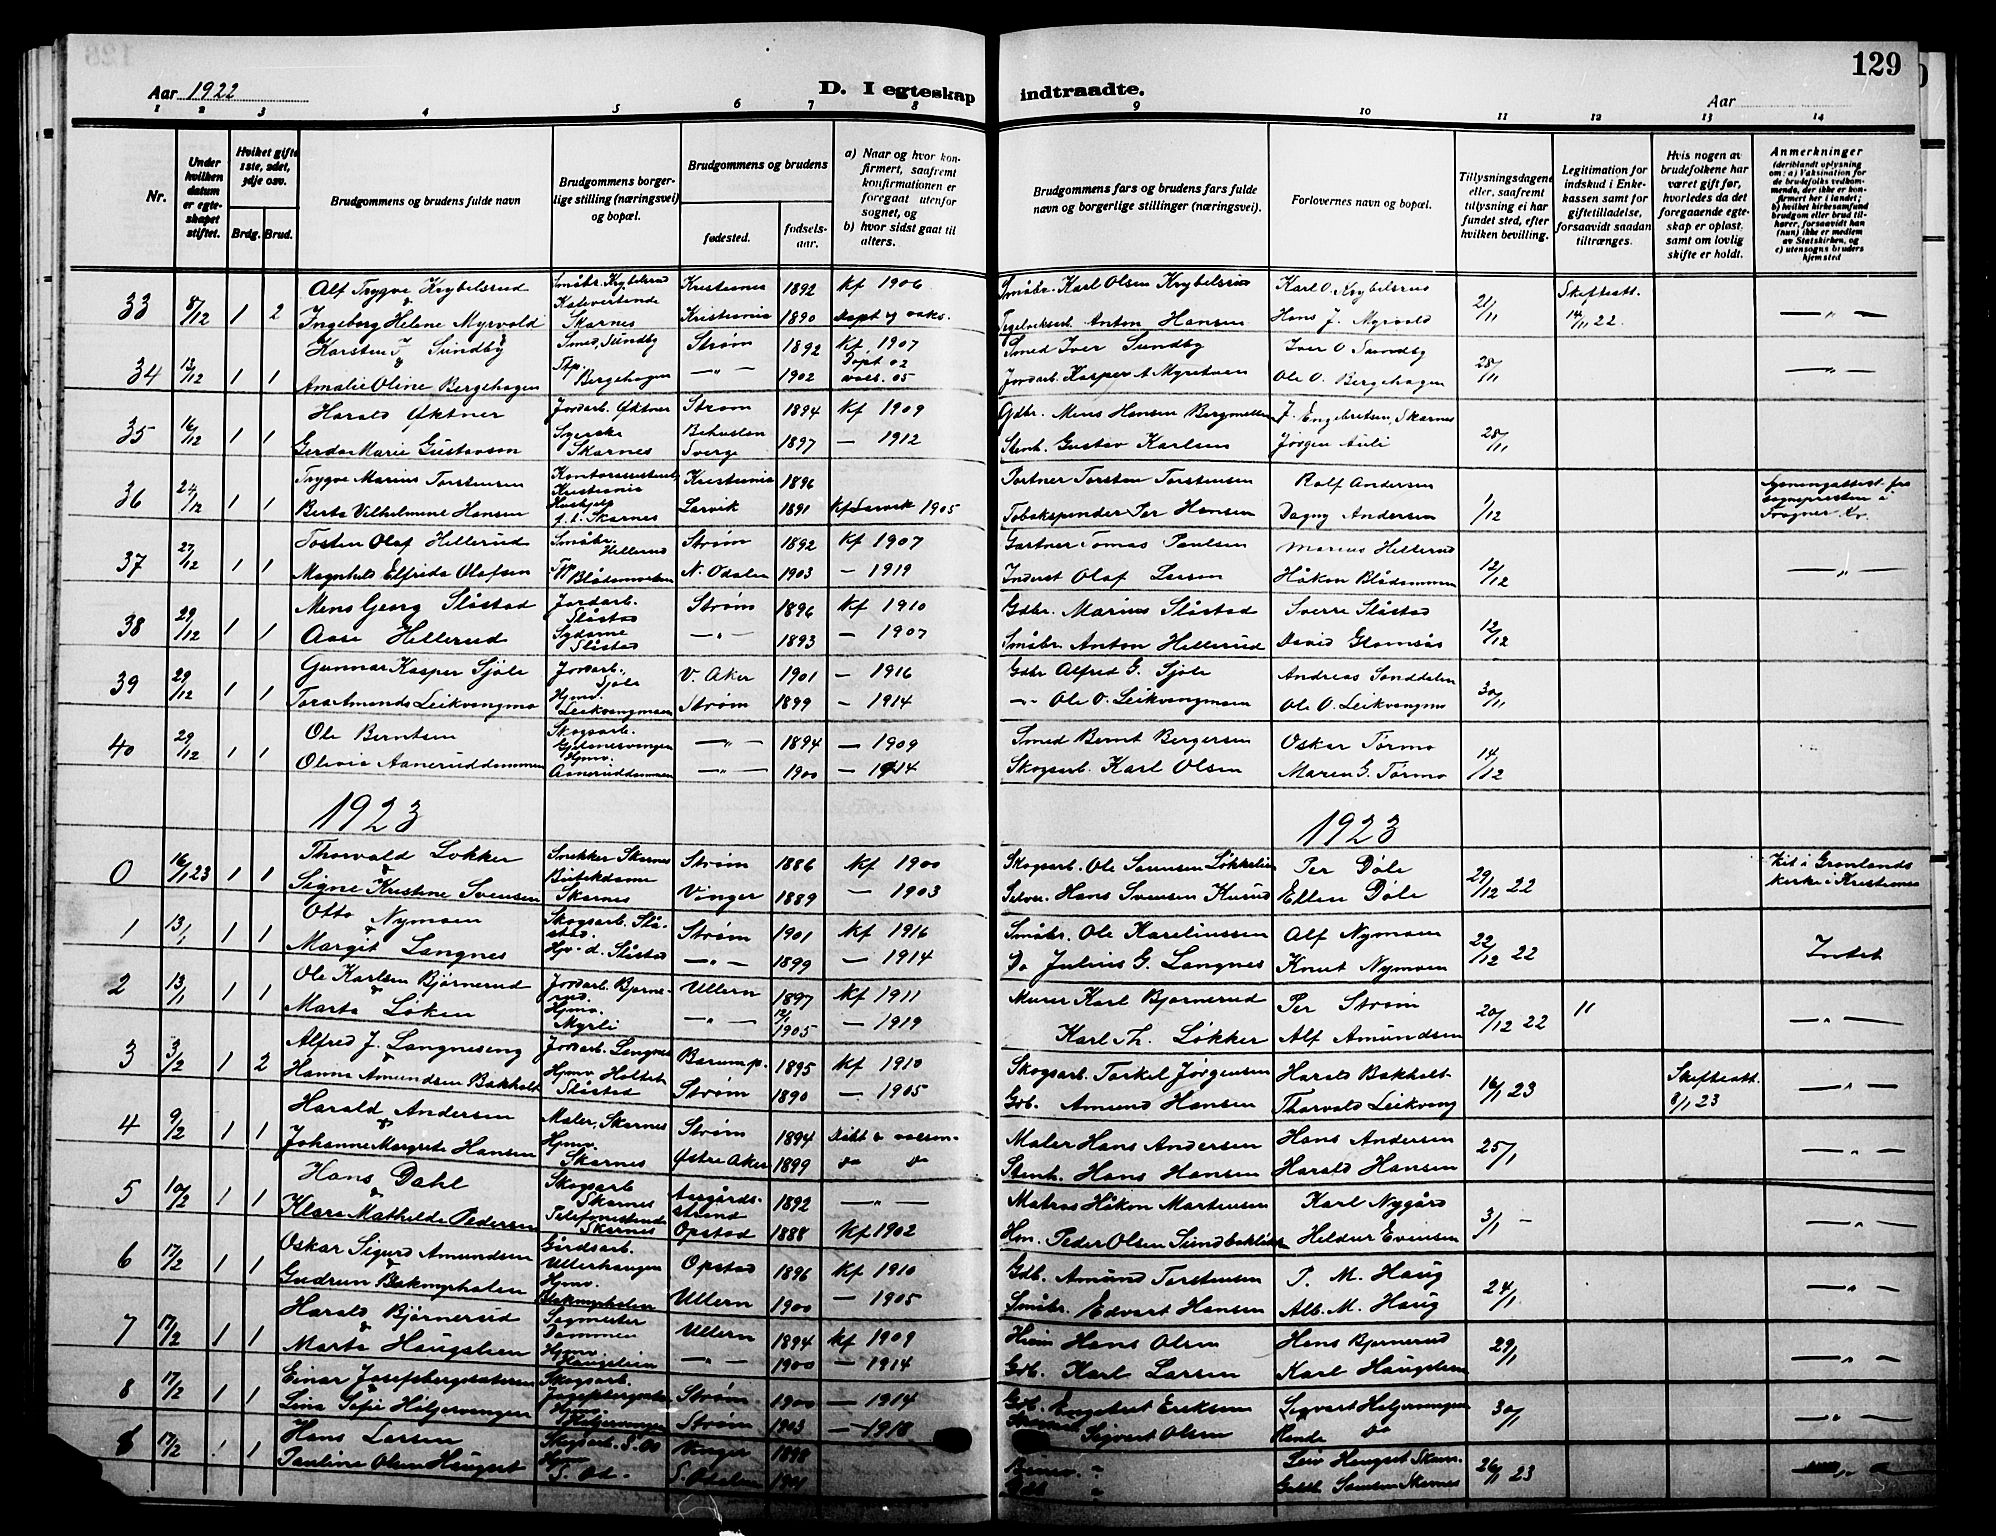 129
Aar 1922
D. I egteskap indtraadte.
Aar
1 2 3 4 5 6 7 8 9 10 11 12 13 14
Nr.
Under hvilken datum er egteskapet stiftet.
Hvilket gifte 1ste, 2det, 3dje osv.
Brdg. Brud.
Brudgommens og brudens fulde navn
Brudgommens borgerlige stilling (næringsvei) og bopæl.
Brudgommens og brudens
fødested.
fødselsaar.
a) Naar og hvor konfirmert, saafremt konfirmationen er foregaat utenfor sognet, og
b) hvor sidst gaat til alters.
Brudgommens fars og brudens fars fulde navn og borgerlige stillinger (næringsvei).
Forlovernes navn og bopæl.
Tillysningsdagene eller, saafremt tillysning ei har fundet sted, efter hvilken bevilling.
Legitimation for indskud i Enkekassen samt for giftetilladelse, forsaavidt saadan tiltrænges.
Hvis nogen av brudefolkene har været gift før, hvorledes da det foregaaende egteskap er opløst samt om lovlig skifte er holdt.
Anmerkninger
(deriblandt oplysning om: a) Vaksination for de brudefolks vedkommende, der ikke er konfirmert her i landet; b) hvilket kirkesamfund brudgom eller brud tilhører, forsaavidt han (hun) ikke er medlem av Statskirken, og c) utensogns bruders hjemsted
33 8/12 1 2 Alf Trygve Krybelsrud Småbr. Krybelsrud Kristiania 1892 Kf 1906 Småbr. Karl Olsen Krybelsrud Karl O. Krybelsrud 21/11 Skifteatt. 14/11 22. — " —
& Ingeborg Helene Myrvold Skarnes Kristiania 1890 Anton Hansen Hans J. Myrvold
34 12/12 1 1 Karsten I Sundby Smed, Sundby Strøm 1892 Kf 1907 Smed Iver Sundby Iver O Sundby 28/11 — " —
& Amalie Oline Bergehagen Bergehagen — " — 1902 Døpt 02 vacs. 05 Jordarb. Kasper A Myretvan Ole O. Bergehagen
35 16/12 1 1 Harald Øktner Jordarb. Øktner Strøm 1894 Kf 1909 Gdbr. Mens Hansen J. Engebretsen, Skarnes 28/11
Gerda Marie Gustavson Skarnes Sverge 1897 — 1912 Stenh. Gustav Karlsen Jørgen Auli
36 24/12 1 1 Trygve Marius Torstensen Kristiania Kristiania 1896 Portner Torsten Torstensen Rolf Andersen 1/12
Berta Vilhelmine Hansen Skarnes Larvik 1891 Kf Larvik 1905 Tobakspinder Per Hansen Dagny Andersen
37 27/12 1 1 Tosten Olaf Hellerud Småbr. Hellerud Strøm 1892 Kf 1907 Gartner Tomas Paulsen Marius Hellerud 12/12 — " —
Magnhild Elfrida Olafsen N. Odalen 1903 — 1919 Inderst Olaf Larsen Håkon
38 29/12 1 1 Mens Georg Slåstad Jordarb. Slåstad Strøm 1896 Kf 1910 Gdbr. Marius Slåstad Sverre Slåstad 12/12
Aase Hellerud Sydame Slåstad — " — 1893 — 1907 Småbr. Anton Hellerud David Glomsås
39 29/12 1 1 Gunnar Kasper Sjøli Jordarb. Sjøli V. Aker 1901 — 1916 Gdbr Alfred G. Sjøli Andreas 30/11
Tora Amanda Leikvangmo Hjmv. Strøm 1899 — 1914 — " — Ole O. Leikvangmoen Ole O. Leikvangmo
40 29/12 1 1 Ole Berntsen Skogsarb. — " — 1894 — 1909 Smed Bernt Bergersen Oskar Tormo 14/12
Olivia Aaneruddammen Hjmv. Aaneruddammen — " — 1900 — 1914 Skogsarb. Karl Olsen Maren G. Tormo
1923 1923
0 16/1 23 1 1 Thorvald Løkker Snekker Skarnes Strøm 1886 Kf 1900 Skogsarb. Ole Sørensen Løkkelien Per Døli 29/12 22 Viet i Grønlands kirke i Kristiania
& Signe Kristine Svensen Butikdame Skarnes Vinger 1889 — 1903 Selvei. Hans Svensen Kurud Ellen Døli
1 13/1 1 1 Otto Nymoen Skogsarb. Slåstad. Strøm 1901 Kf 1916 Småbr. Ole Karelinssen Alf Nymoen 22/12 22 Intet
& Margit Langnes Hjv. d. Slåstad — " — 1899 — 1914 Do Julius G. Langnes Knut Nymoen
2 13/1 1 1 Ole Karlsen Bjørnerud Jordarb. Bjørnerud. Ullern 1897 Kf 1911 Murer Karl Bjørnerud Per Strøm 20/12 22 11 — " —
& Marta Løken Hjmv. Myrli — " — 12/1 1905 — 1919 Karl Th. Løkker Alf Amundsen
3 3/2 1 2 Alfred J. Langneseng Jordarb. Langnes 1895 Kf 1910 Skogsarb. Torkel Jørgensen Harald Bakholt 16/1 23 Skifteatt. 8/1 23 — " —
& Hanna Amundsen Bakholt Hjmv Holtet Slåstad Strøm 1890 — 1905 Gdb. Amund Hansen Thorvald Leikvang
4 9/2 1 1 Harald Andersen Maler, Skarnes Strøm 1894 Maler Hans Andersen Hans Andersen 25/1 — " —
& Johanne Margrete Hansen Hjmv. Skarnes Østre Aker 1899 do do Stenh. Hans Hansen Harald Hansen
5 10/2 1 1 Hans Dahl Skogsarb Skarnes Aasgårdsstrand 1892 — " — Matros Håkon Martensen Karl Nygård 3/1 — — " —
& Klara Mathilde Pedersen Skarnes Opstad 1888 Kf 1902 Peder Olsen Heldur Evensen
6 17/2 1 1 Oskar Sigurd Amundsen Gårdsarb. Ullerhaugen Opstad 1896 Kf 1910 Gdb. Amund Torstensen P. M. Haug 24/1 — " —
& Gudrun Bakmyrhalen Hjmv. Bakmyrhalen Ullern 1900 — 1905 Småbr. Edvart Hansen Alb. M. Haug
7 17/2 1 1 Harald Bjørnerud Sagmester Dammen Ullern 1894 Kf 1909 Hans Olsen Hans Bjørnerud 29/1 — " —
& Marta Haugslien Hjmv. Haugslien — " — 1900 — 1914 Gdb. Karl Larsen Karl Haugslien
8 17/2 1 1 Einar Josefsbergsætersen Skogsarb. Strøm 1900 — 1914 Gdb. Engebret Eriksen Sigvart Holjervangen 30/1 — " —
Lina Sofie Holjervangen Hjmv Holjervangen Strøm 1903 — 1918 Sigvart Olsen
17/2 1 1 Hans Larsen Skogsarb. S. Od Vinger 1898 26/1 23
Pauline Olsen Haugset Hjmv S. Od. S. Odalen 1901